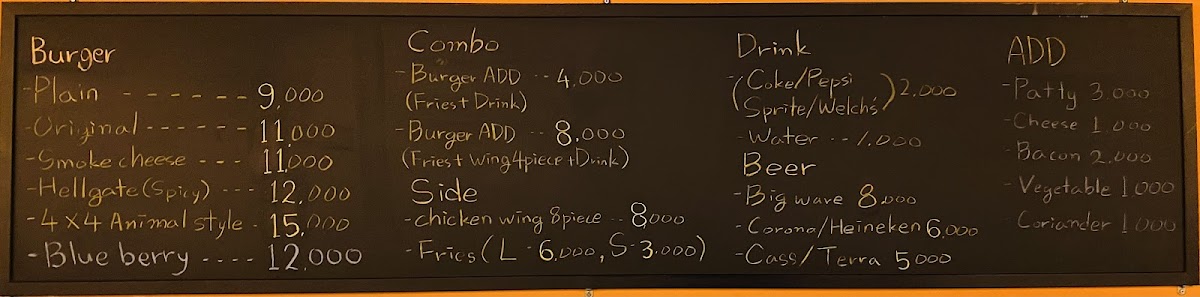 Burger
-Plain ------ 9,000
-Original ------ 11,000
-Smoke cheese --- 11,000
-Hellgate (Spicy) --- 12,000
-4x4 Animal style - 15,000
-Blue berry ---- 12,000
Combo
-Burger ADD -- 4,000
(Fries+Drink)
-Burger ADD -- 8,000
(Fries+wing4piece+Drink)
Side
-chicken wing 8piece -- 8,000
-Fries (L-6,000, S-3,000)
Drink
-(Coke/Pepsi
Sprite/Welch's) 2,000
-Water -- 1,000
Beer
-Big wave 8,000
-Corona/Heineken 6,000
-Cass/Terra 5000
ADD
-Patty 3.000
-Cheese 1.000
-Bacon 2.000
-Vegetable 1000
-Coriander 1.000